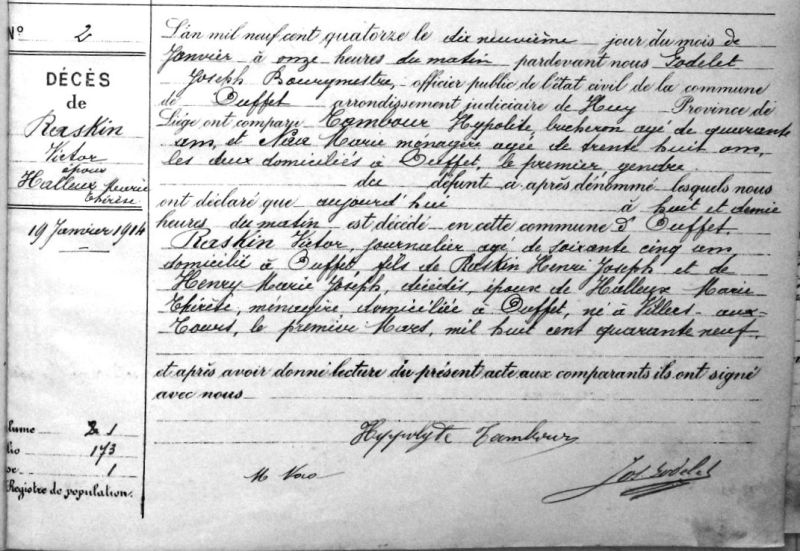 N° 2
DÉCÈS
de
Raskin
Victor
époux
Halleux Marie
Thérèse
19 Janvier 1914
L'an mil neuf cent quatorze le dix neuvième jour du mois de
Janvier à onze heures du matin pardevant nous Godelet
Joseph Bourgmestre, officier public de l'état civil de la commune
de Ouffet arrondissement judiciaire de Huy Province de
Liége ont comparu Tambour Hypolite, bucheron agé de quarante
ans, et Marie ménagère agée de trente huit ans,
les deux domiciliés à Ouffet, le premier gendre
du défunt ci après dénommé lesquels nous
ont déclaré que aujourd'hui à huit et demie
heures du matin est décédé en cette commune d'Ouffet
Raskin Victor, journalier agé de soixante cinq ans
domicilié à Ouffet fils de Raskin Henri Joseph et de
Henry Marie Joseph, décédés, époux de Halleux Marie
Thérèse, ménagère, domiciliée à Ouffet, né à Villers-aux-
Tours, le premier Mars, mil huit cent quarante neuf.
et après avoir donné lecture du présent acte aux comparants ils ont signé
avec nous
Hyppolyte Tambour
M
Jos Godelet
lume 1
lio 173
se 1
Registre de population.